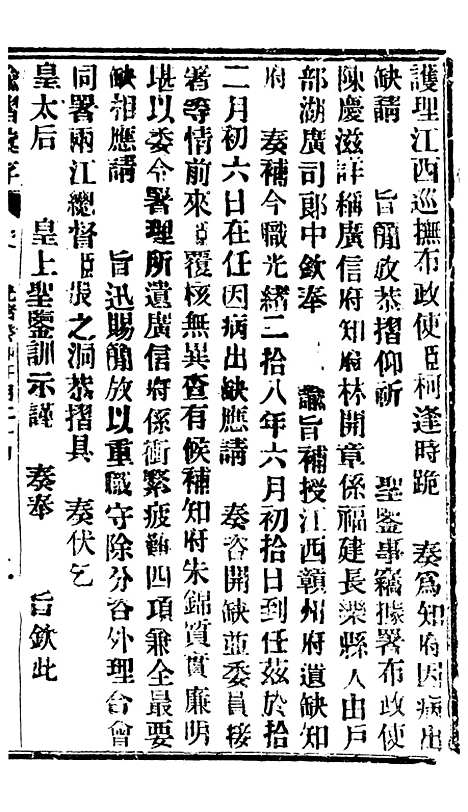 護理江西巡撫布政使臣柯逢時跪　奏爲知府因病出
缺請　旨簡放恭摺仰祈　聖鑒事竊據署布政使
陳慶滋詳稱廣信府知府林開章係福建長樂縣人由戶
部湖廣司郎中欽奉　諭旨補授江西贛州府遺缺知
府　奏補今職光緒二拾八年六月初拾日到任茲於拾
二月初六日在任因病出缺應請　奏咨開缺並委員接
署等情前來臣覆核無異查有候補知府朱錦質實廉明
堪以委令署理所遺廣信府係衝繁疲難四項兼全最要
缺相應請　旨迅賜簡放以重職守除分咨外理合會
同署兩江總督臣張之洞恭摺具　奏伏乞
皇太后　皇上聖鑒訓示謹　奏奉　旨欽此
諭摺彙存